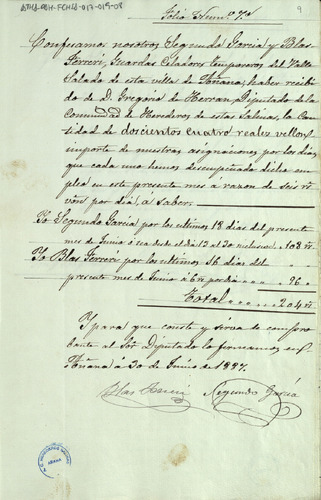 ATHA-DAH-FCHA-017-019-08
Folio Num.º 7.º
9
Confesamos nosotros Segundo Garcia y Blas
Ferreri, Guardas Celadores temporeros del Valle
Salado de esta villa de Añana, haber recibi
do de D. Gregorio de Herran, Diputado de la
Comunidad de Herederos de estas Salinas, la Can
tidad de doscientos cuatro reales vellon,
importe de nuestras asignaciones por los dias
que cada uno hemos desempeñado dicho em
pleo en este presente mes á razon de seis r.s
v.on por dia, á saber:
Yo Segundo Garcia por los ultimos 18 dias del presente
mes de Junio ó sea desde el dia 13 al 30 inclusive.. 108 r.s
Yo Blas Ferreri por los ultimos 16 dias del
presente mes de Junio á 6 r.s por dia ... 96 "
Total ....... 204 r.s
Y para que conste y sirva de compro
bante al Sor. Diputado lo firmamos en
Añana á 30 de Junio de 1887.
Blas Ferreri Segundo Garcia